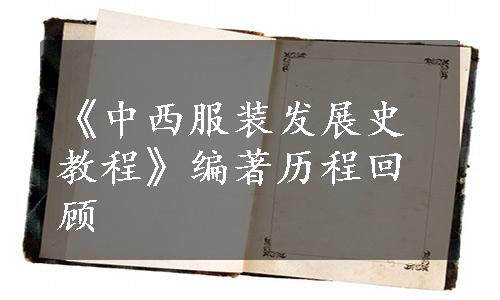 《中西服装发展史
教程》编著历程回
顾